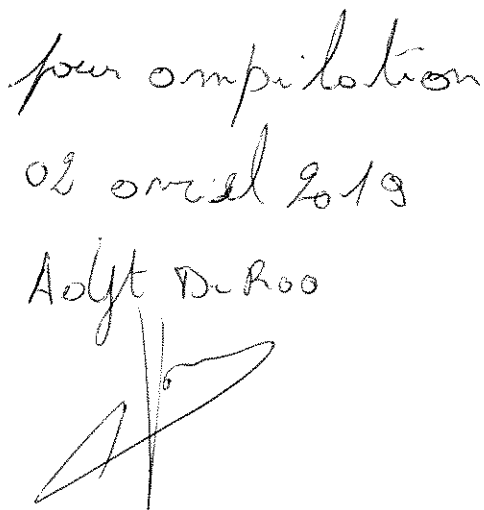 pour ompilation
02 avril 2019
Adjt De Roo